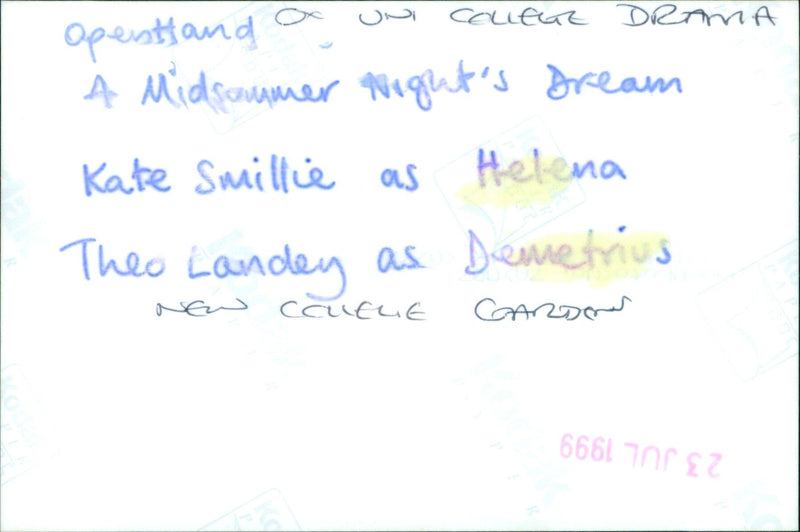 OX UNI COLLEGE DRAMA
A Midsummer Night's Dream
Kate Smillie as Helena
Theo Landey as Demetrius
NEW COLLEGE GARDENS
23 JUL 1999